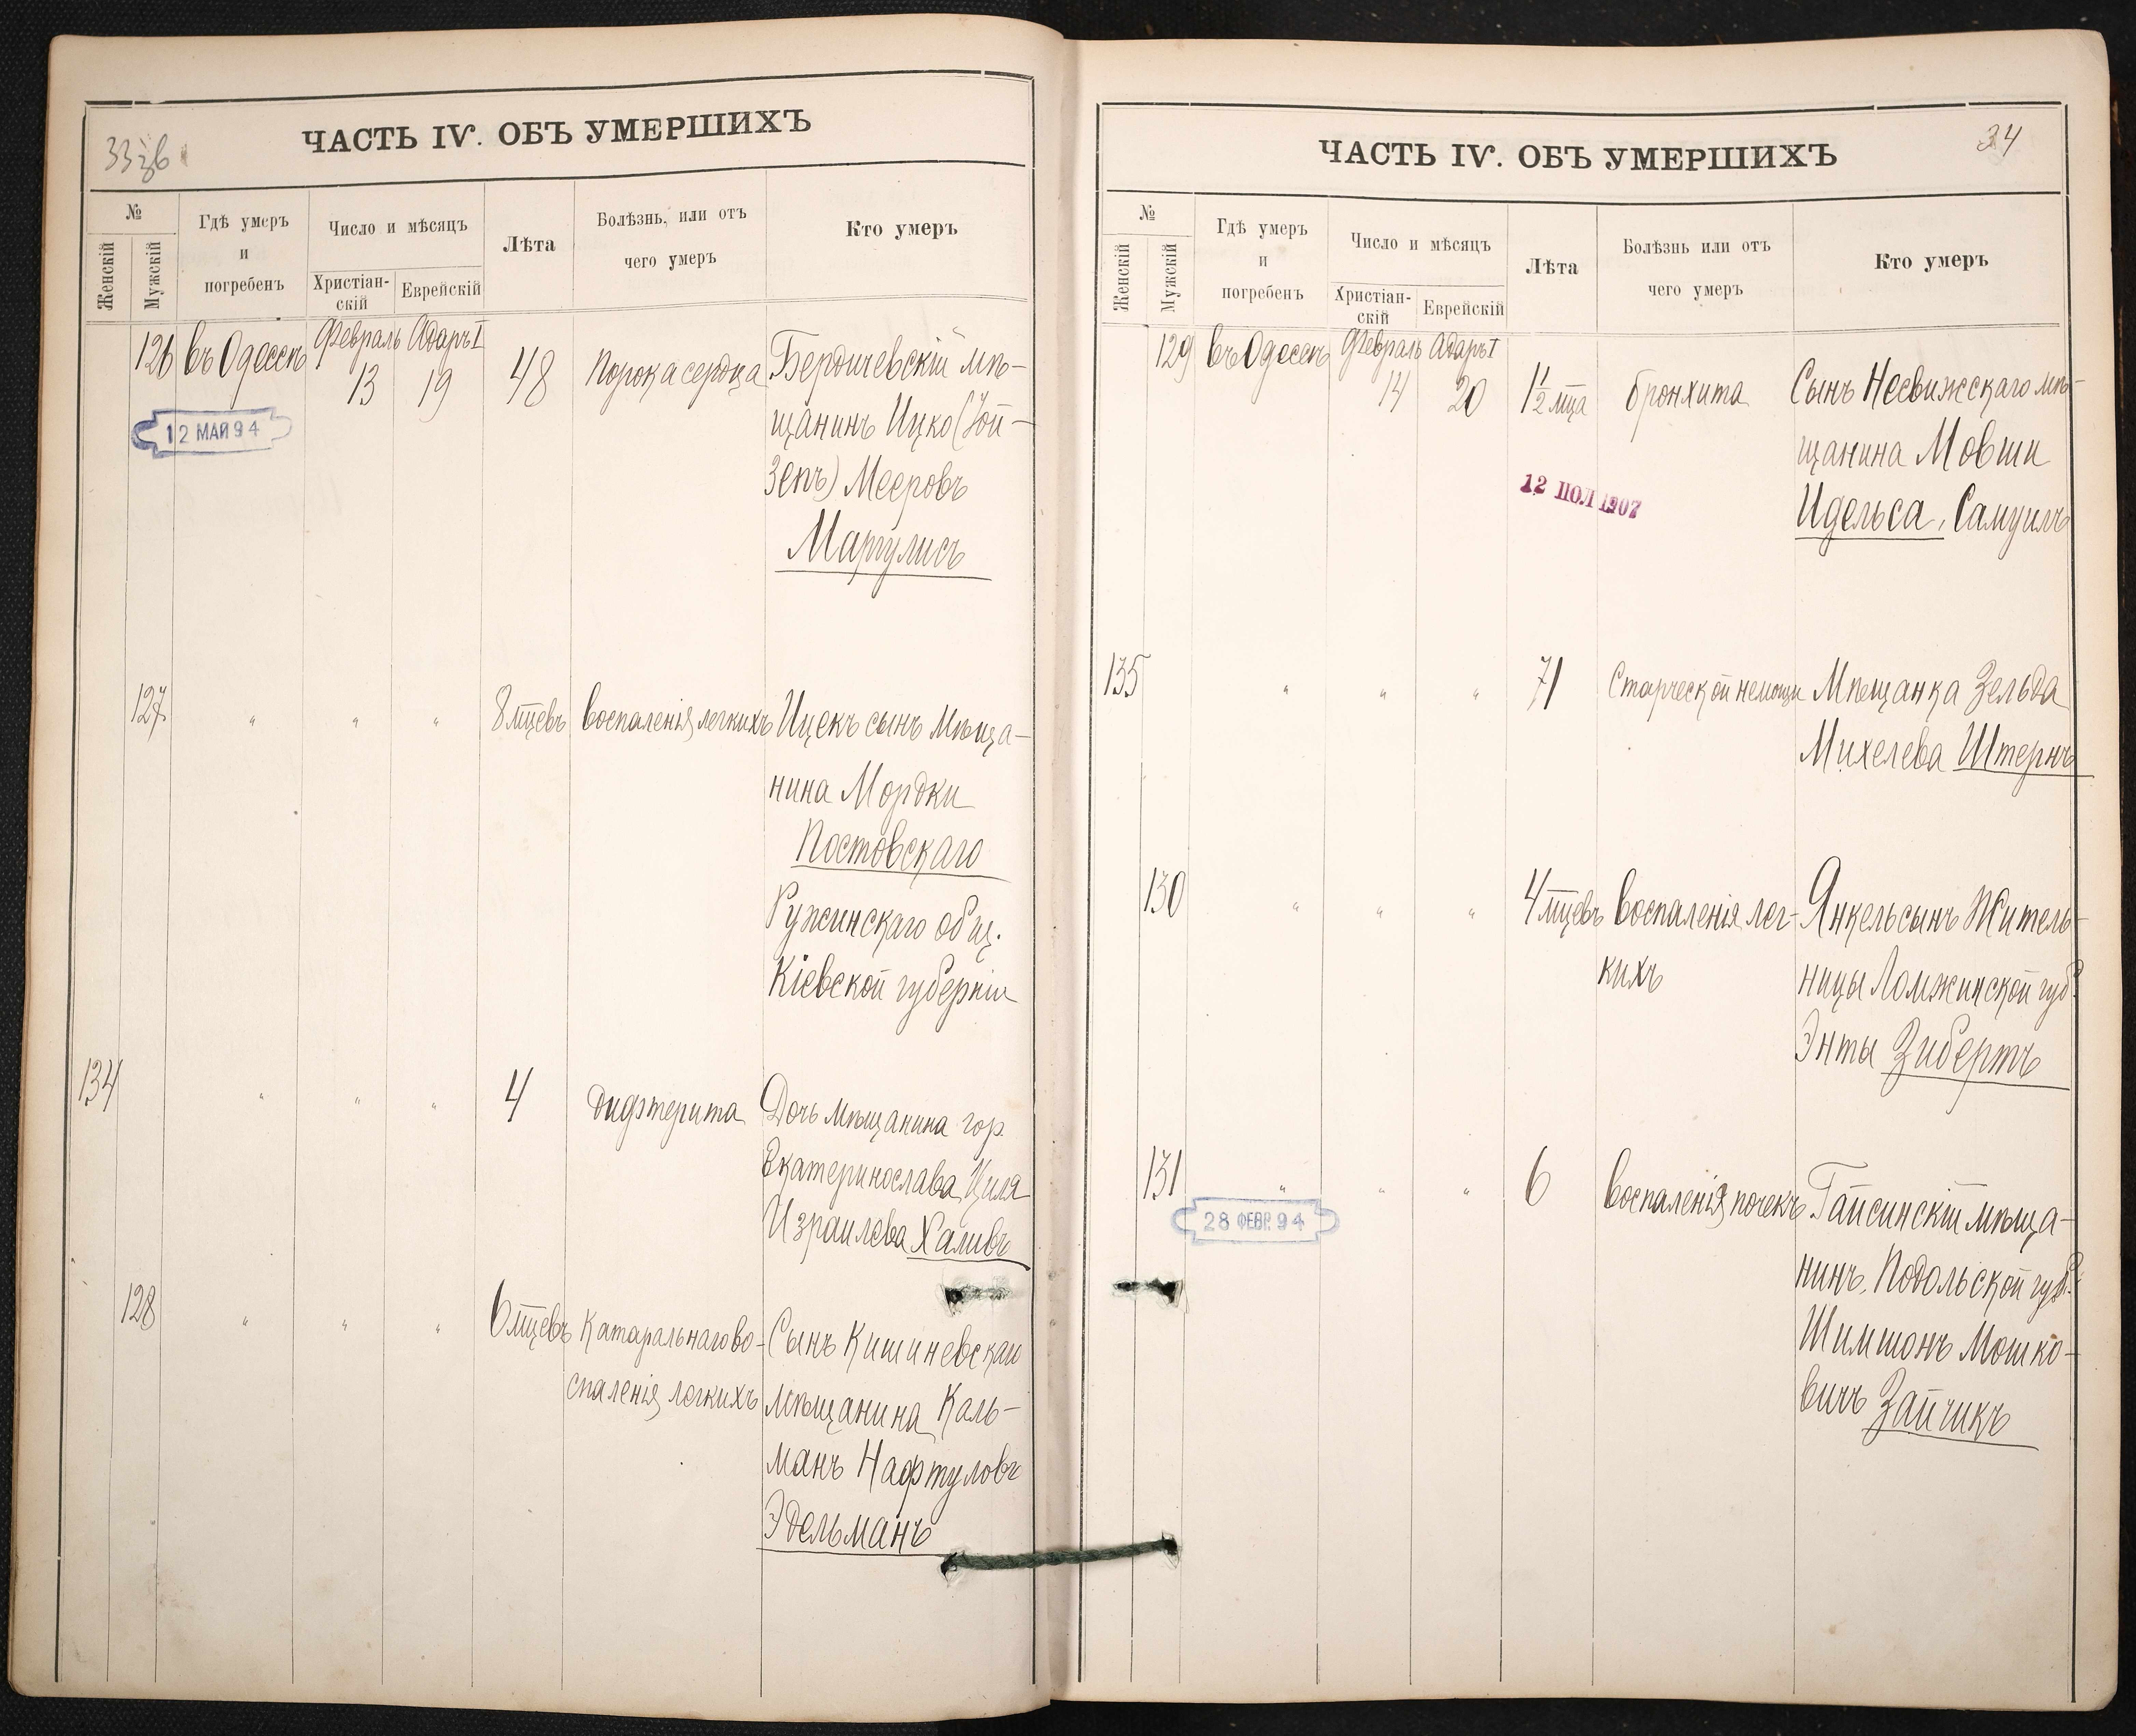 33 зв
ЧАСТЬ IV. ОБЪ УМЕРШИХЪ
№
Женскій
Мужскій
Гдѣ умеръ
и
погребенъ
Число и мѣсяцъ
Христіан-
скій
Еврейскій
Лѣта
Болѣзнь, или отъ
чего умеръ
Кто умеръ
126 въ Одессѣ Февраль Адаръ I
13 19 48 Порока сердца Бердичевскій мѣ-
щанинъ Ицко (Зой-
зепъ) Мееровъ
Маргулисъ
12 МАЙ 94
127 " " " 8 мцевъ воспаленія легкихъ Ицекъ сынъ Мѣща-
нина Мордки
Постовскаго
Ружинскаго общ.
Кіевской губерніи
134 " " " 4 дифтерита Дочь мѣщанина гор.
Екатеринослава Циля
Израилева Халивъ
128 " " " 6 мцевъ Катаральнаго во-
спаленія легкихъ
Сынъ Кишиневскаго
мѣщанина Каль-
манъ Нафтуловъ
Эдельманъ
34
ЧАСТЬ IV. ОБЪ УМЕРШИХЪ
№
Женскій
Мужскій
Гдѣ умеръ
и
погребенъ
Число и мѣсяцъ
Христіан-
скій
Еврейскій
Лѣта
Болѣзнь или отъ
чего умеръ
Кто умеръ
129 въ Одессѣ Февраль Адаръ I
14 20 1 1/2 мца бронхита Сынъ Несвижскаго мѣ-
щанина Мовши
Идельса, Самуилъ
12 ІЮЛ 1907
135 " " " 71 Старческой немощи Мѣщанка Зельда
Михелева Штернъ
130 " " " 4 мцевъ воспаленія лег-
кихъ
Янкель сынъ Житель-
ницы Ломжинской губ.
Энты Зибертъ
131 " " " 6 воспаленія почекъ Гайсинскій мѣща-
нинъ, Подольской губ.
Шимшонъ Мошко-
вичъ Зайчикъ
28 ФЕВР. 94